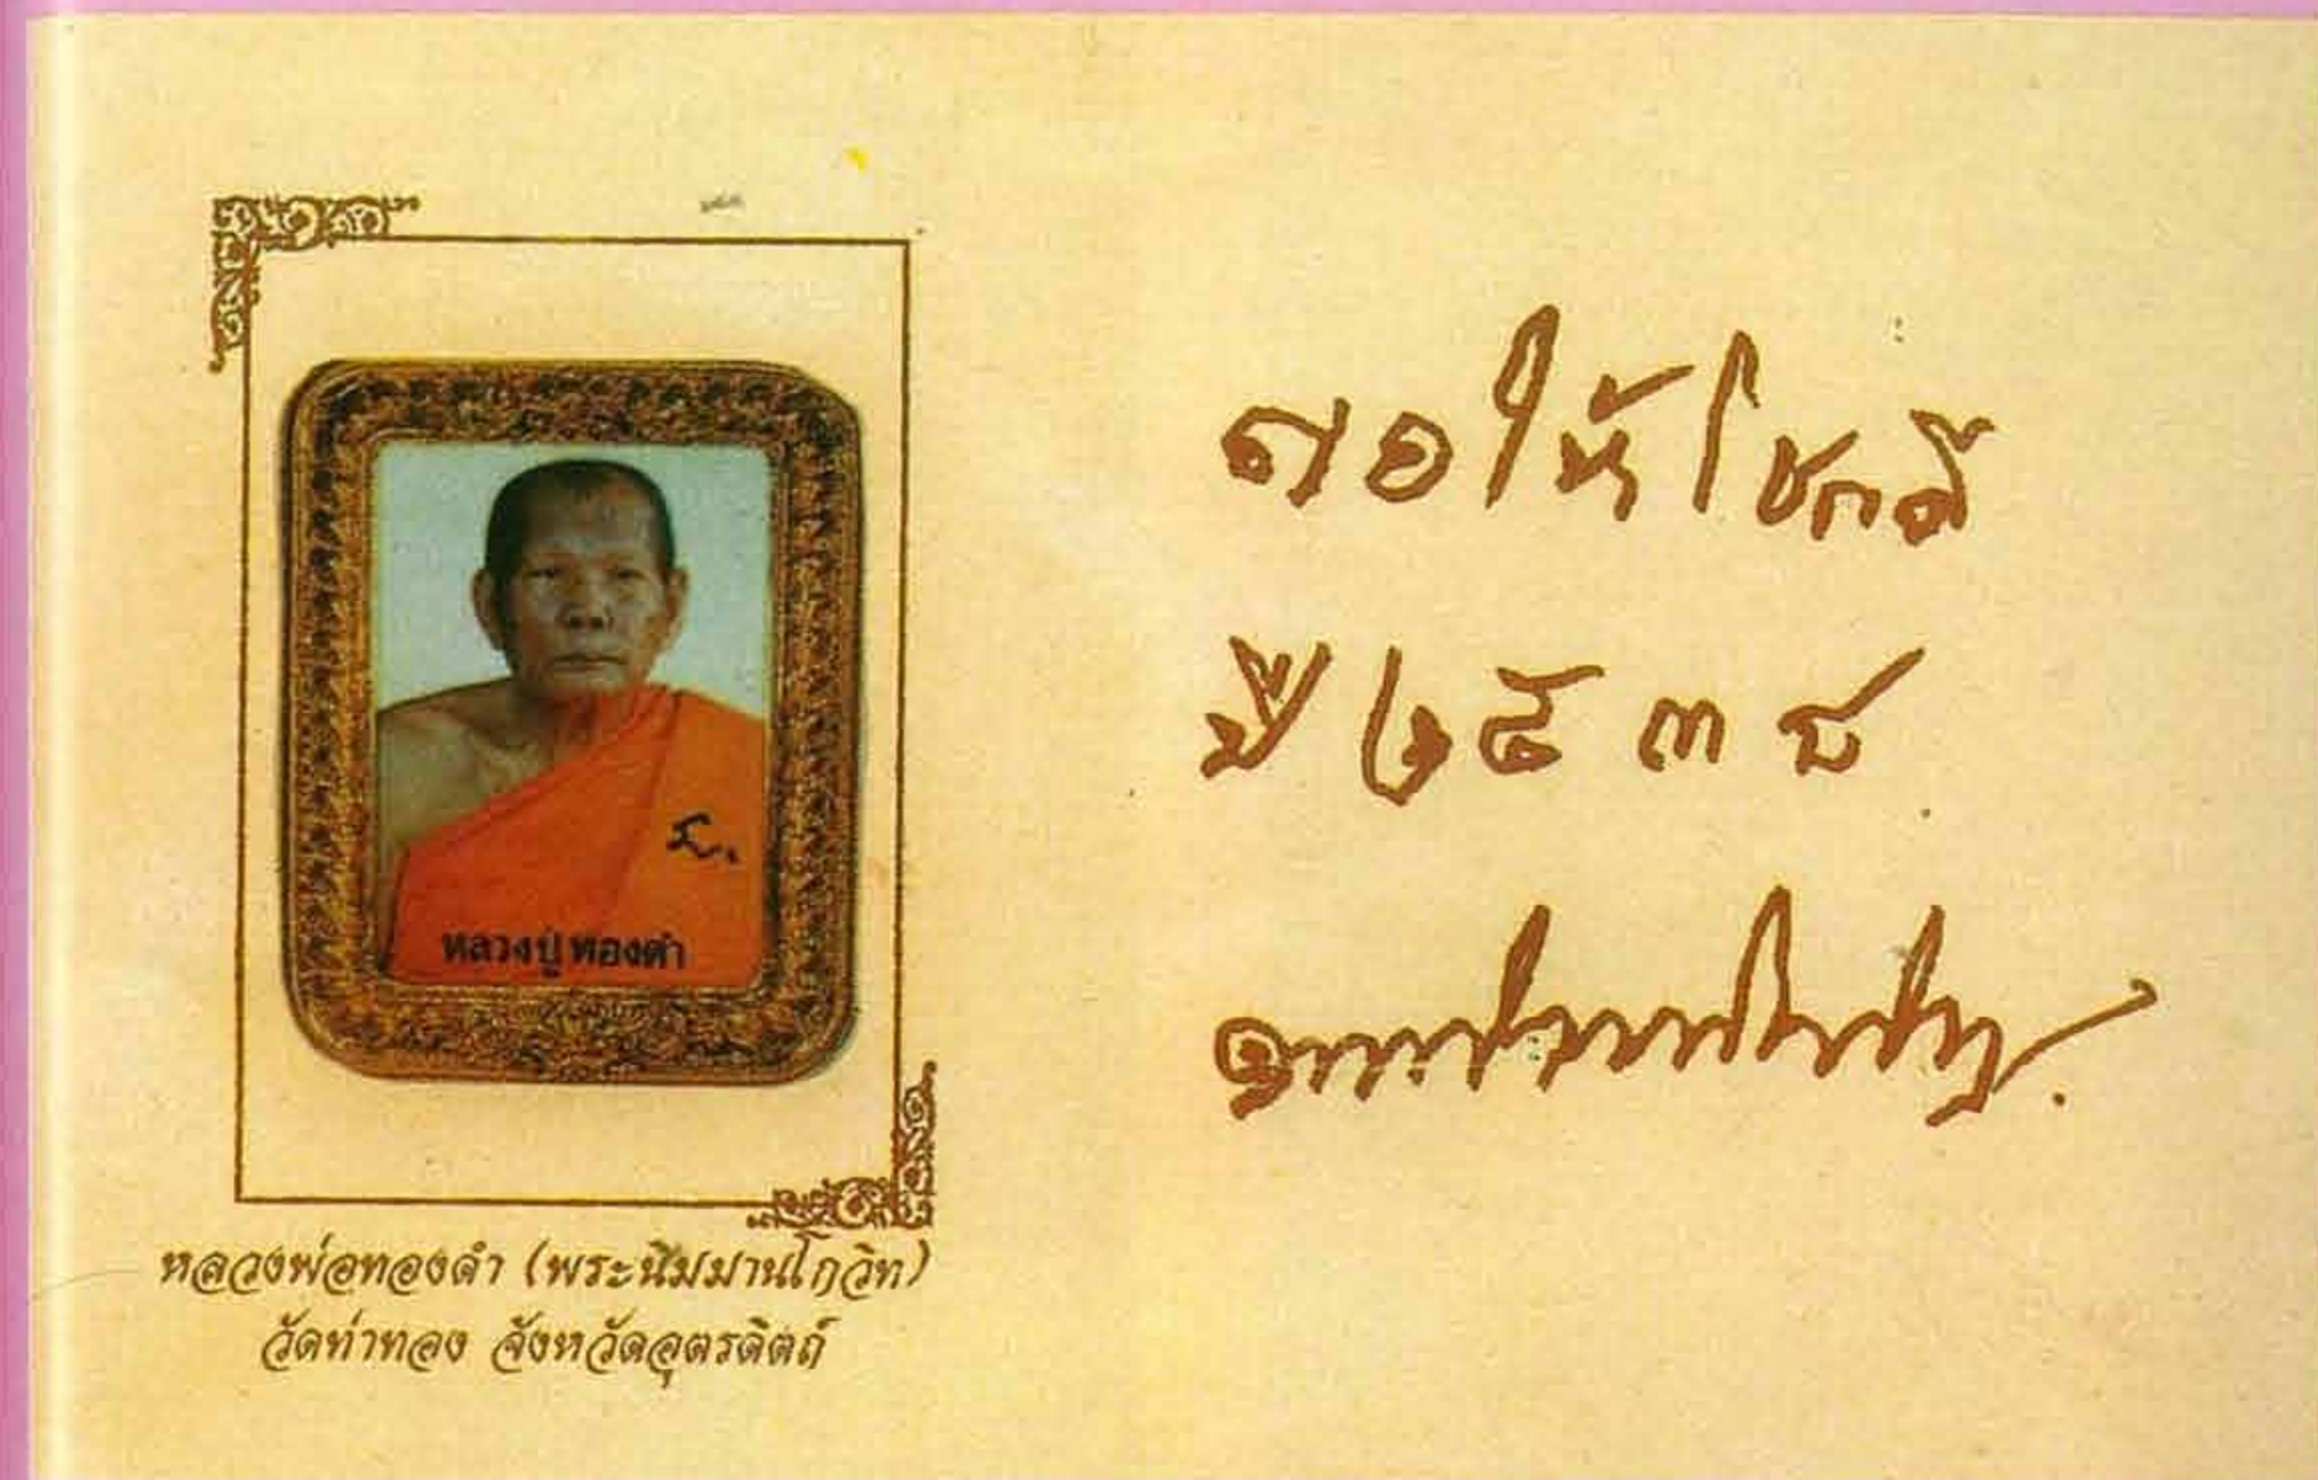 หลวงปู่ทองดำ
หลวงพ่อทองดำ (พระนิมมานโกวิท)
วัดท่าทอง จังหวัดอุตรดิตถ์
ขอให้โชคดี
ปี ๒๕๓๘